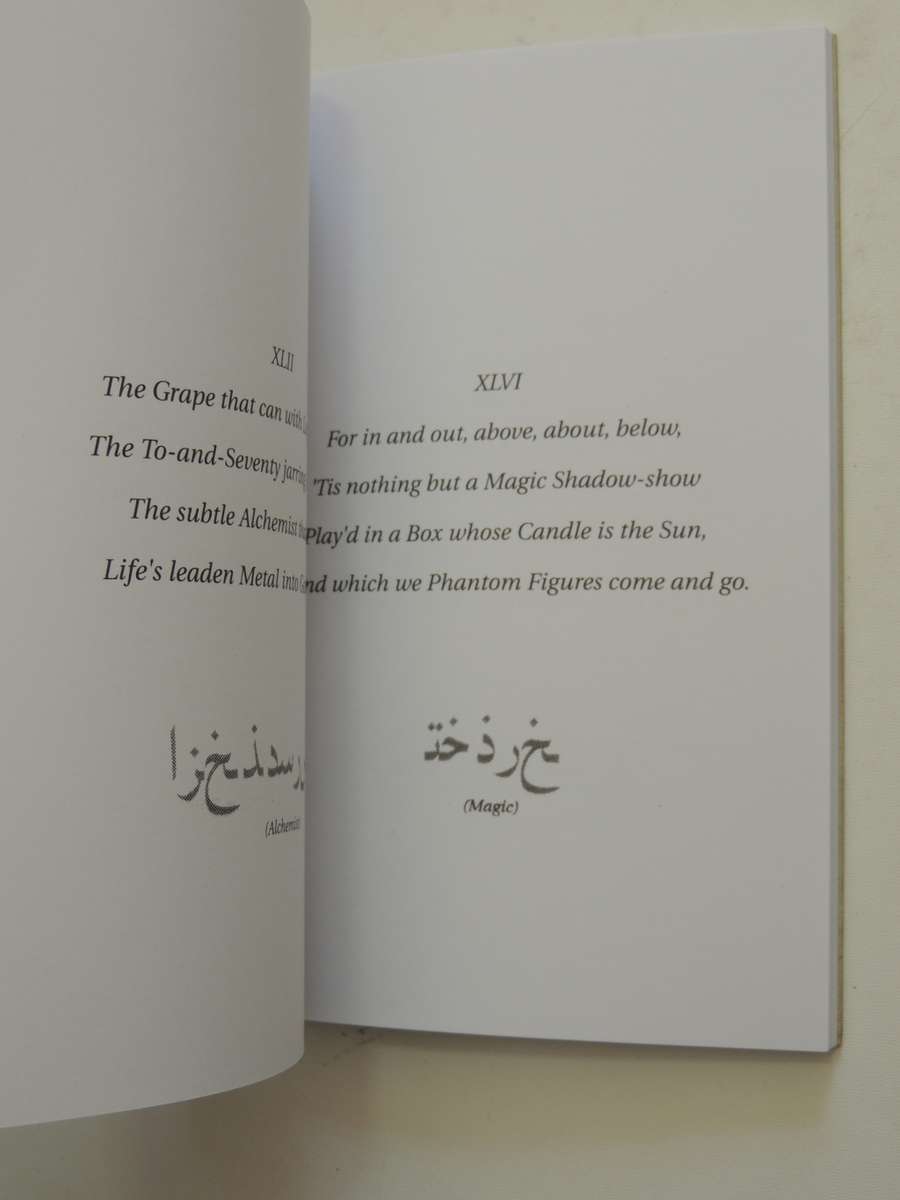 XLII
The Grape that can with
The To-and-Seventy jarring
The subtle Alchemist
Life's leaden Metal into
(Alchemist)
XLVI
For in and out, above, about, below,
'Tis nothing but a Magic Shadow-show
Play'd in a Box whose Candle is the Sun,
which we Phantom Figures come and go.
خرذخت
(Magic)